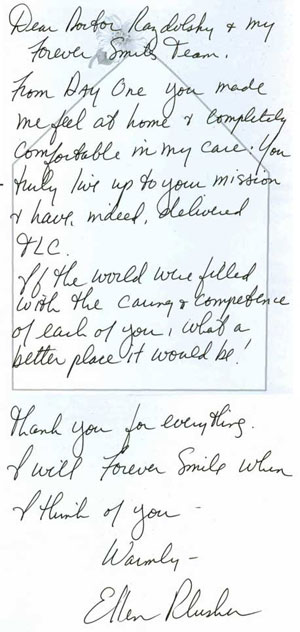 Dear Doctor Razdolsky & my
Forever Smiles Team,
From Day One you made
me feel at home & completely
comfortable in my care. You
truly live up to your mission
& have, indeed, delivered
TLC.
If the world were filled
with the caring & competence
of each of you, what a
better place it would be!
Thank you for everything.
I will Forever Smile when
I think of you –
Warmly –
Ellen